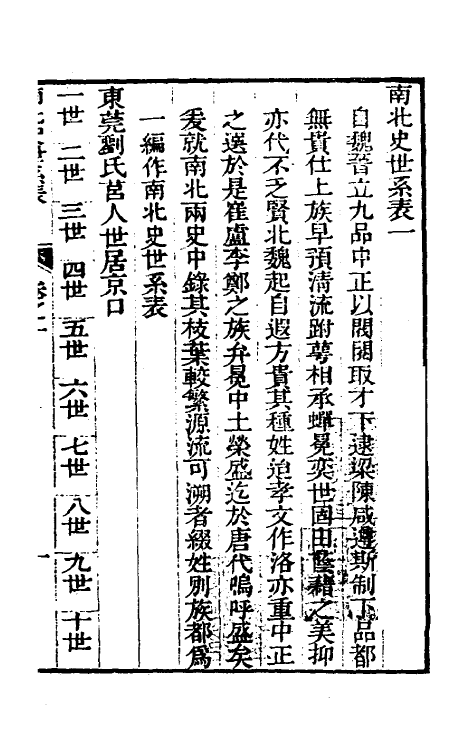 南北史世系表一
自魏晉立九品中正以閥閱取才下逮梁陳咸遵斯制下品都
無貲仕上族早預淸流跗萼相承蟬冕奕世固由蔭藉之美抑
亦代不乏賢北魏起自遐方貴其種姓迨孝文作洛亦重中正
之選於是崔盧李鄭之族弁冕中土榮盛迄於唐代嗚呼盛矣
爰就南北兩史中錄其枝葉較繁源流可溯者綴姓别族都爲
一編作南北史世系表
東莞劉氏莒人世居京口
一世 二世 三世 四世 五世 六世 七世 八世 九世 十世
卷之一 一